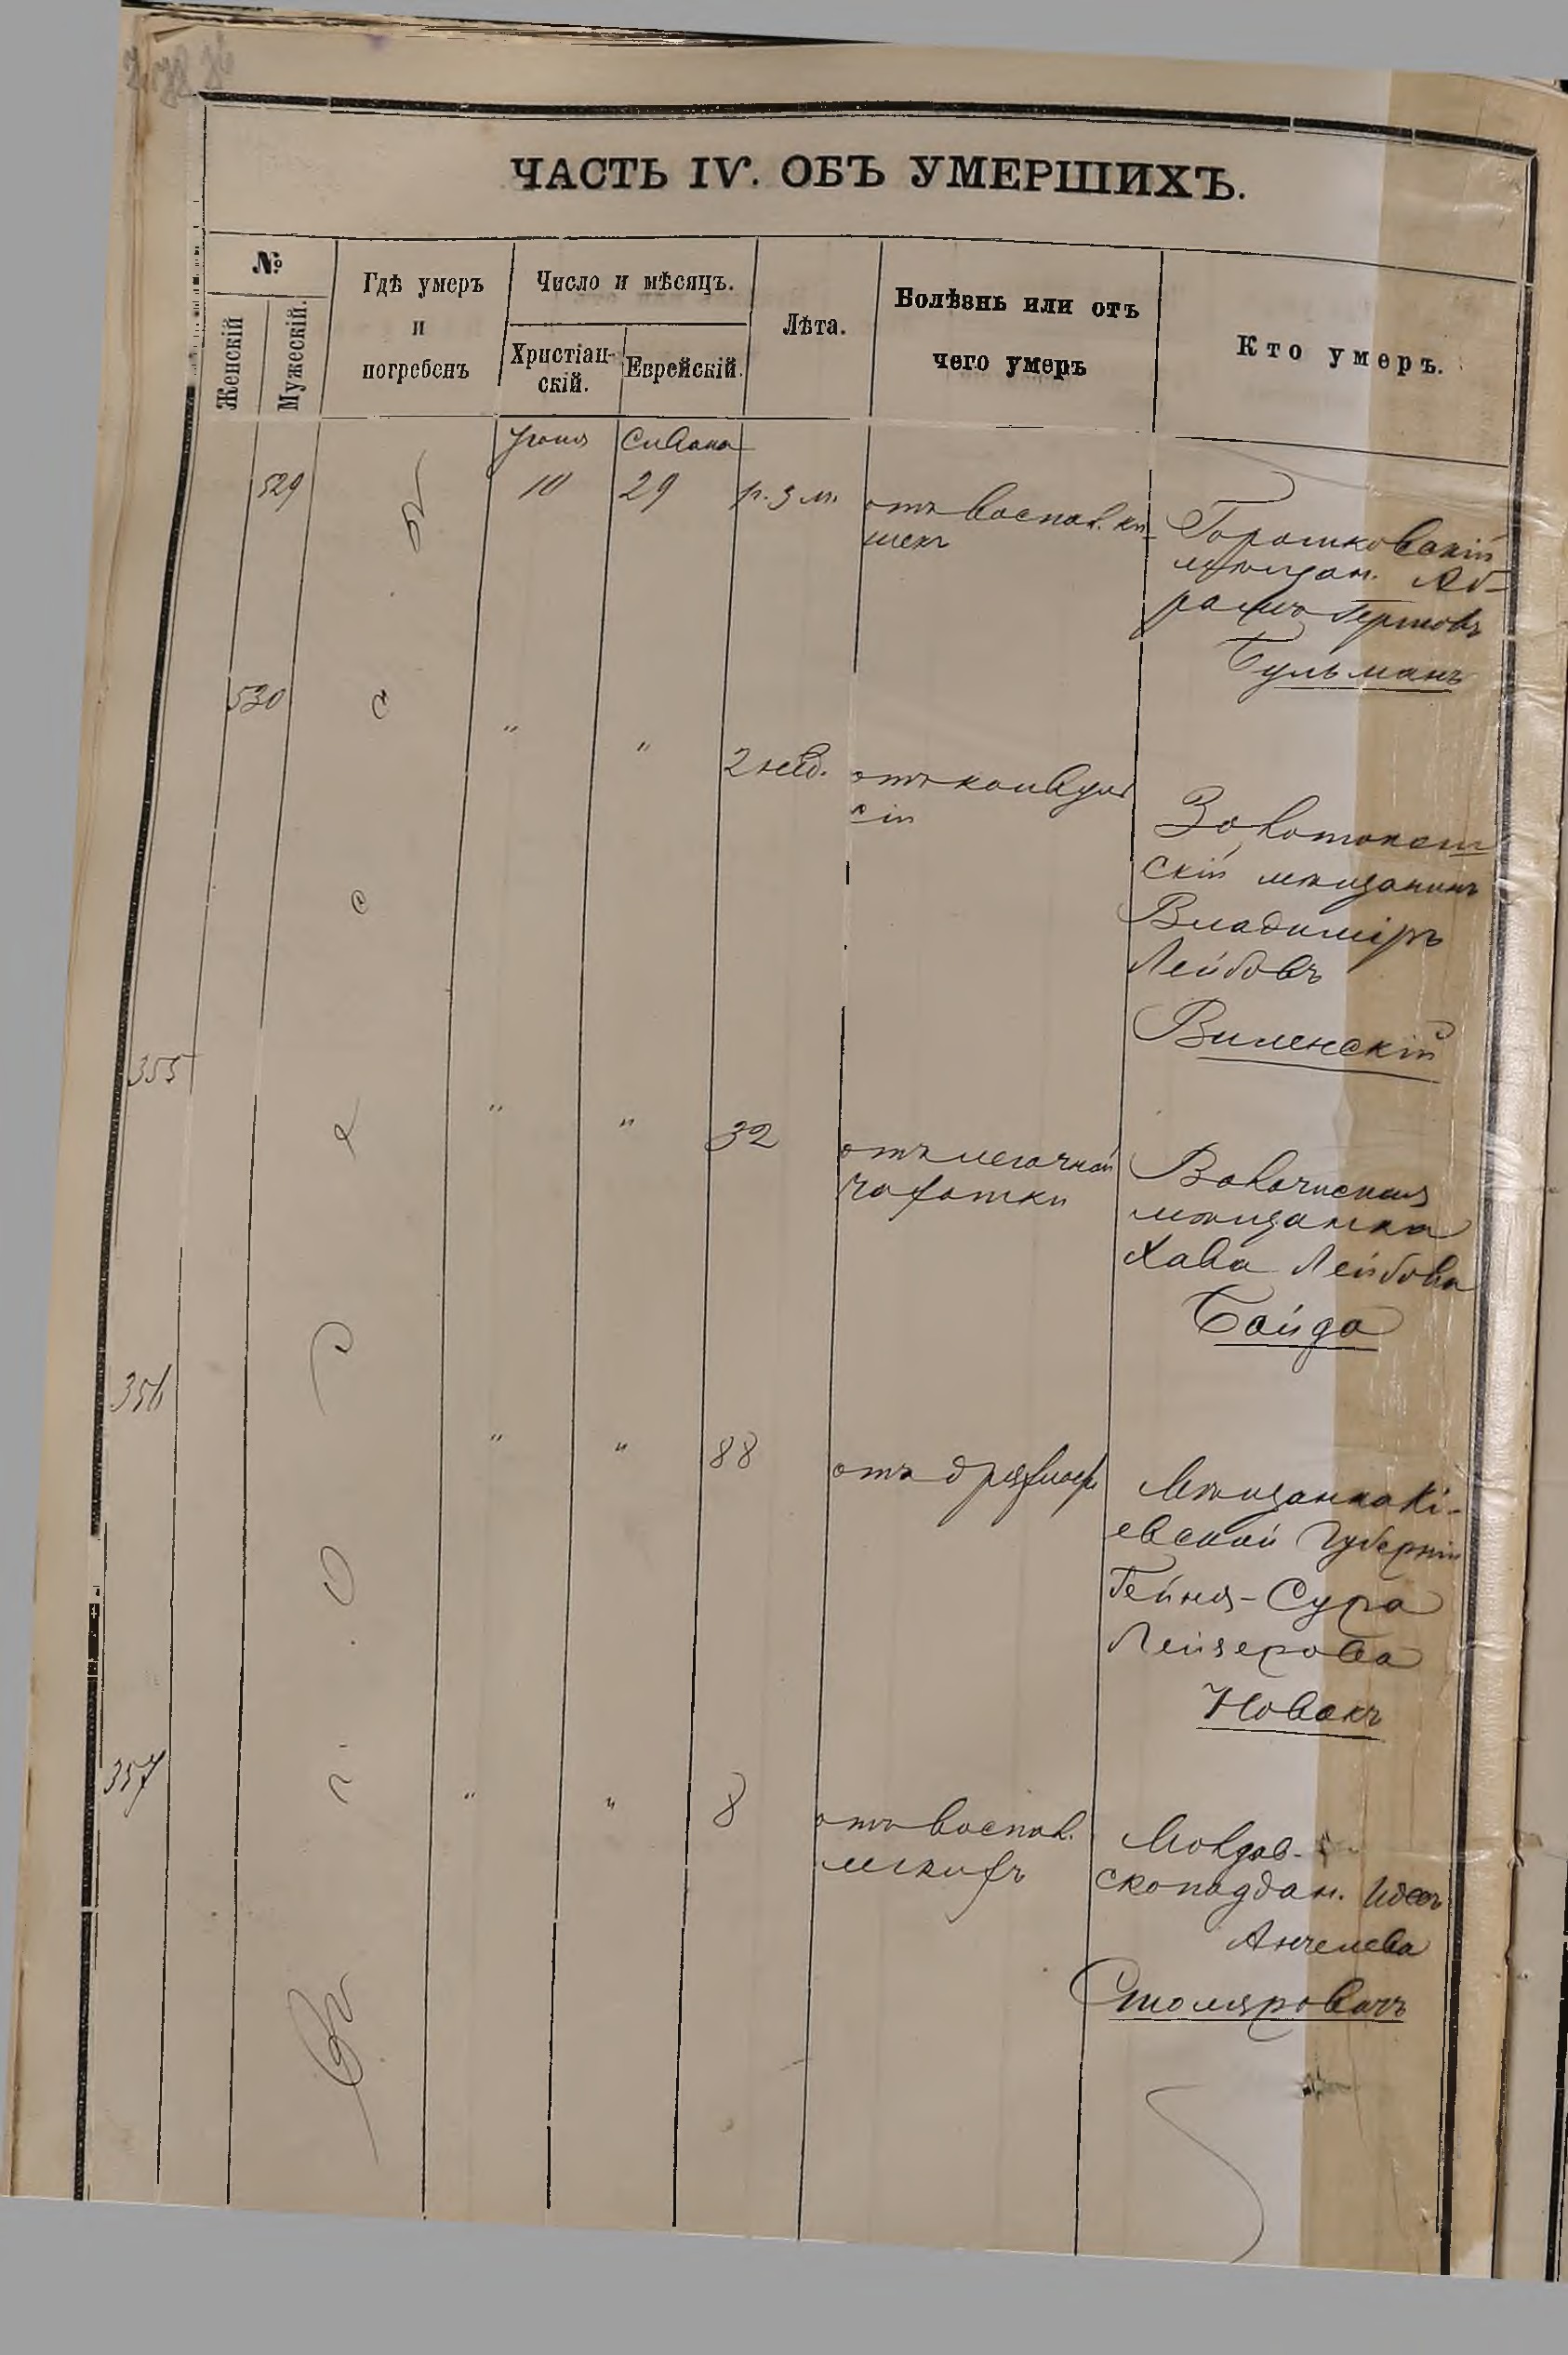 ЧАСТЬ IV. ОБЪ УМЕРШИХЪ.
№
Женскій
Мужескій.
Гдѣ умеръ
и
погребенъ
Число и мѣсяцъ.
Христіан-
скій.
Еврейскій.
Лѣта.
Болѣзнь или отъ
чего умеръ
Кто умеръ.
Іюня Сивана
529 10 29 1 г. 3 м. отъ воспал. ки-
шекъ
Горошковскій
мѣщан. Аб-
рамъ Гершовъ
Бульманъ
530 " " 2 нед. отъ конвуль
сій
Золотонош
скій мѣщанинъ
Владиміръ
Лейбовъ
Виленскій
355 " " 32 отъ легочной
чахотки
мѣщанка
Хава Лейбова
Бойда
356 " " 88 отъ дряхлос
Мѣщанка Кі-
евской Губерніи
Гейня-Сура
Лейзерова
Новакъ
357 " " 8 отъ воспал.
легкихъ
Молдав-
скоподдан.
Анчелева
Столяровичъ